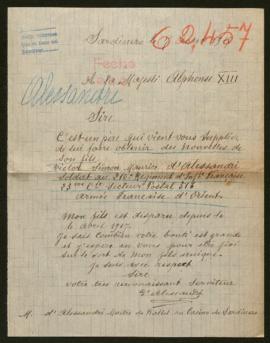 62457
Sardinero
Fecha
A sa Majesté Alphonse XIII
Alessandri
Sire
C'est un père qui vient vous supplier
de lui faire obtenir des nouvelles de
son fils.
Simon Maurice d'Alessandri
Soldat au 210e Régiment d'Infie Française
23me Cie Secteur Postal 516
Armée Française d'Orient.
Mon fils est disparu depuis le
avril 1917.
Je sais combien votre bonté est grande
et j'espère en vous pour être fixé
sur le sort de mon fils unique.
Je suis avec respect
Sire
votre très reconnaissant serviteur
d'Alessandri
M. d'Alessandri Maître de Ballet au Casino de Sardinero